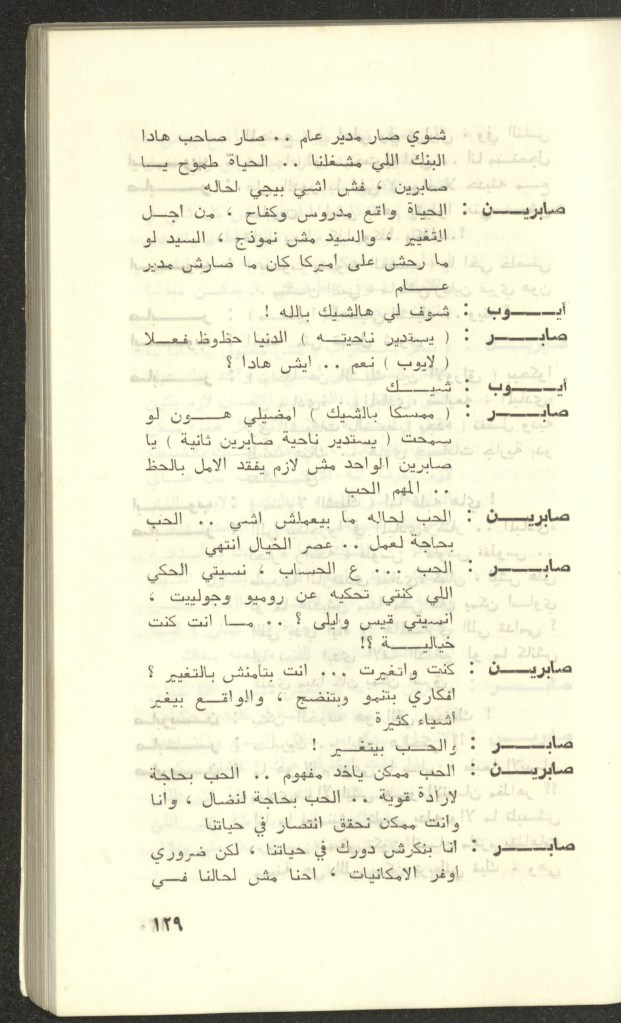 شوي صار مدير عام .. صار صاحب هادا
البنك اللي مشغلنا .. الحياة طموح يـــا
صابرين ، فش اشي بيجي لحاله
صابريــــن : الحياة واقع مدروس وكفاح ، من اجــل
التغيير ، والسيد مش نموذج ، السيد لو
ما رحش على اميركا كان ما صارش مدير
عـــــام
أيـــــوب : شوف لي هالشيك بالله !
صابــــــر : ( يستدير ناحيتـــه ) الدنيا حظوظ فعـــلا
( لايوب ) نعم .. ايش هادا ؟
أيـــــوب : شيـــــك
صابــــــر : ( ممسكا بالشيك ) امضيلي هـــون لو
سمحت ( يستدير ناحية صابرين ثانية ) يا
صابرين الواحد مش لازم يفقد الامل بالحظ
.. المهم الحب
صابريــــن : الحب لحاله ما بيعملش اشي .. الحب
بحاجة لعمل .. عصر الخيال انتهي
صابــــــر : الحب ... ع الحساب ، نسيتي الحكي
اللي كنتي تحكيه عن روميو وجولييت ،
انسيتي قيس وليلى ؟ .. مـــا انت كنت
خياليـــــة ؟!
صابريــــن : كنت واتغيرت ... انت بتأمنش بالتغيير ؟
افكاري بتنمو وبتنضج ، والواقـــع بيغير
اشياء كثيرة
صابــــــر : والحـــب بيتغـــير !
صابريــــن : الحب ممكن ياخد مفهوم .. الحب بحاجة
لارادة قوية .. الحب بحاجة لنضال ، وانا
وانت ممكن نحقق انتصار في حياتنا
صابــــــر : انا بنكرش دورك في حياتنا ، لكن ضروري
اوفر الامكانيات ، احنا مش لحالنا فـــي
١٢٩